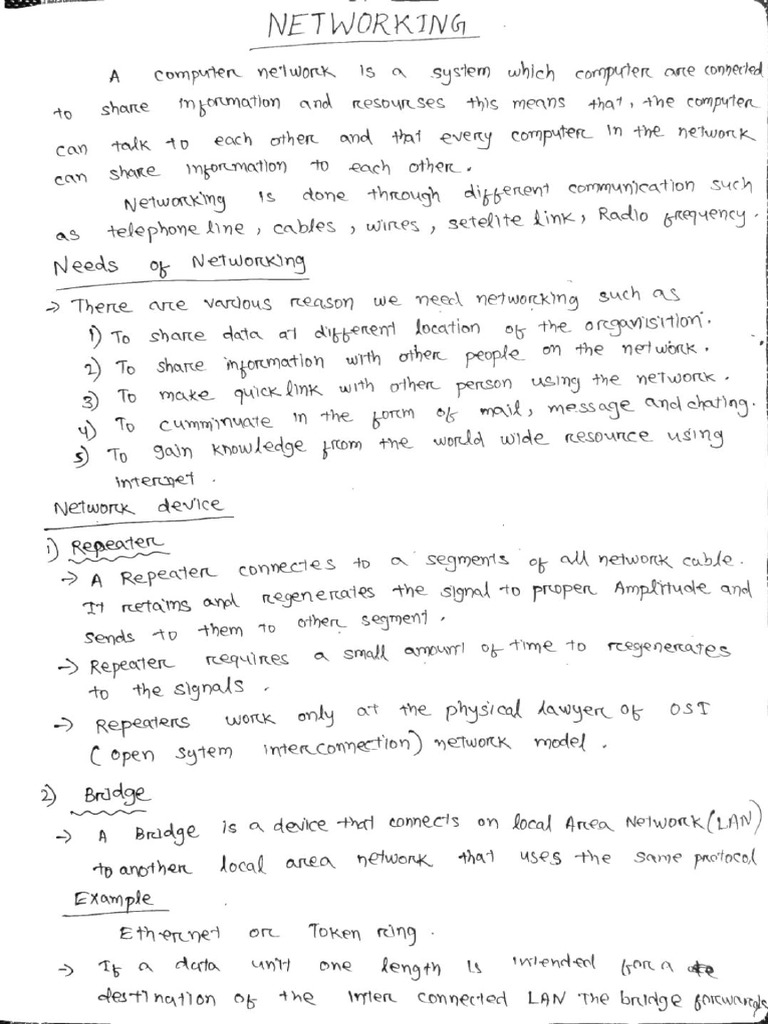 NETWORKING
A computer network is a system which computer are connected
to share information and resourses this means that, the computer
can talk to each other and that every computer in the network
can share information to each other.
Networking is done through different communication such
as telephone line, cables, wires, setelite link, Radio frequency.
Needs of Networking
→ There are various reason we need networking such as
1) To share data at different location of the organisition.
2) To share information with other people on the network.
3) To make quick link with other person using the network.
4) To cumminuate in the form of mail, message and chating.
5) To gain knowledge from the world wide resource using
internet.
Network device
1) Repeater
→ A Repeater connectes to a segments of all network cable.
It retains and regenerates the signal to proper Amplitude and
sends to them to other segment.
→ Repeater requires a small amount of time to regenerates
to the signals.
→ Repeaters work only at the physical lawyer of OSI
(open sytem interconnection) network model.
2) Bridge
→ A Bridge is a device that connects on local Area Network (LAN)
to another local area network that uses the same protocol
Example
Ethernet or Token ring.
→ If a data unit one length is intended for a
destination of the inter connected LAN The bridge forwards